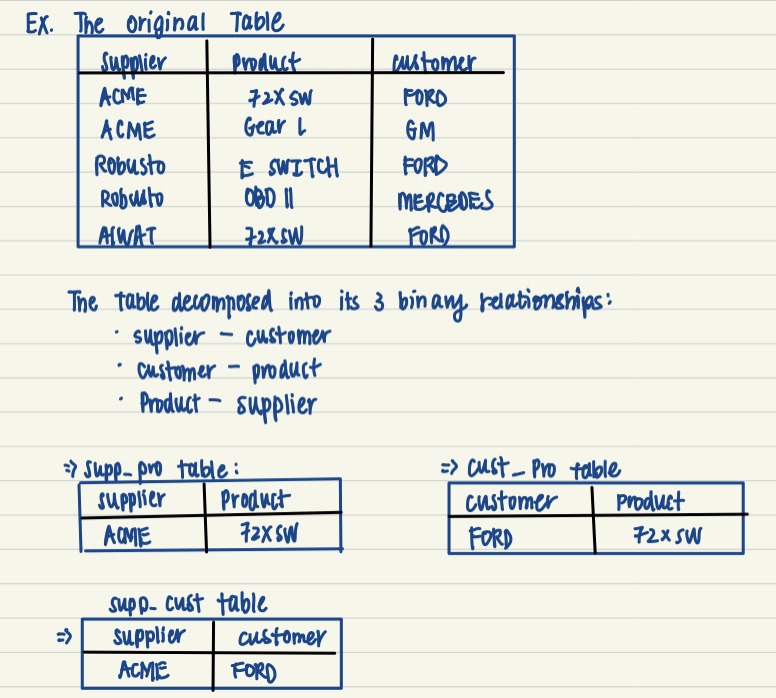 Ex. The original Table
supplier Product customer
ACME 72X SW FORD
ACME Gear L GM
Robusto E SWITCH FORD
Robusto OBD II MERCEDES
AIWAT 72XSW FORD
The table decomposed into its 3 binary relationships:
· supplier - customer
· customer - product
· Product - supplier
=> supp_pro table:
supplier Product
ACME 72XSW
=> cust_Pro table
customer Product
FORD 72x SW
supp_cust table
=> supplier customer
ACME FORD